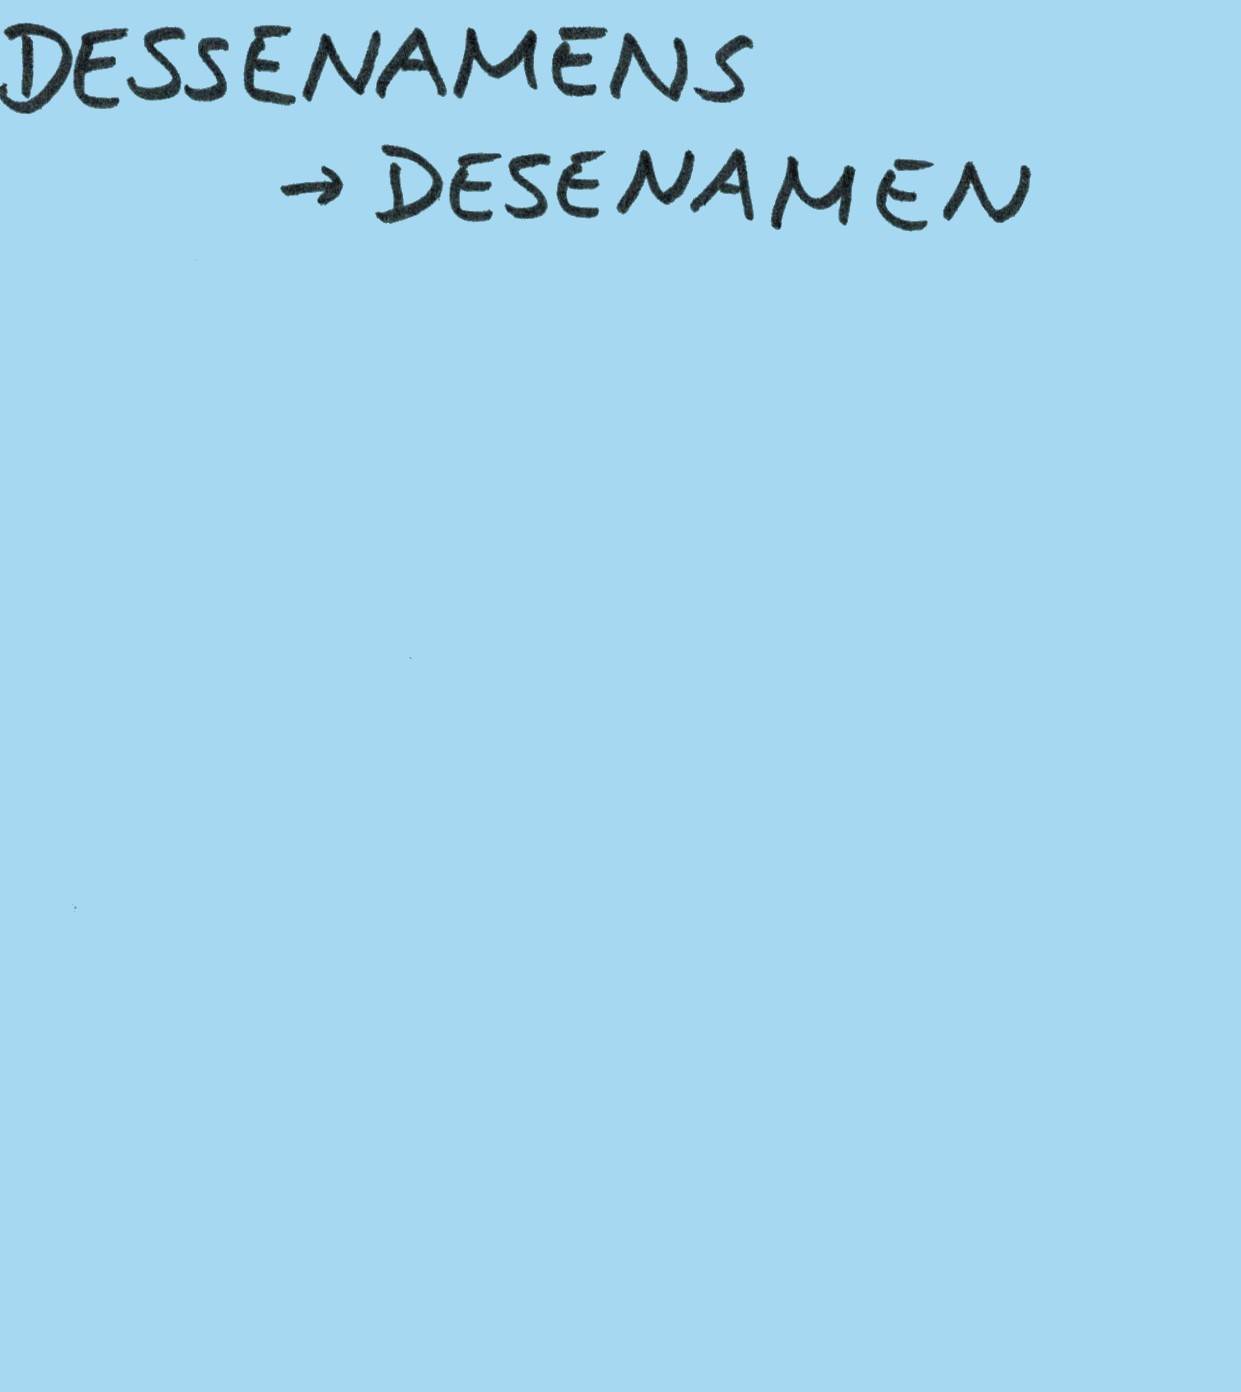 DESSENAMENS
→ DESENAMEN